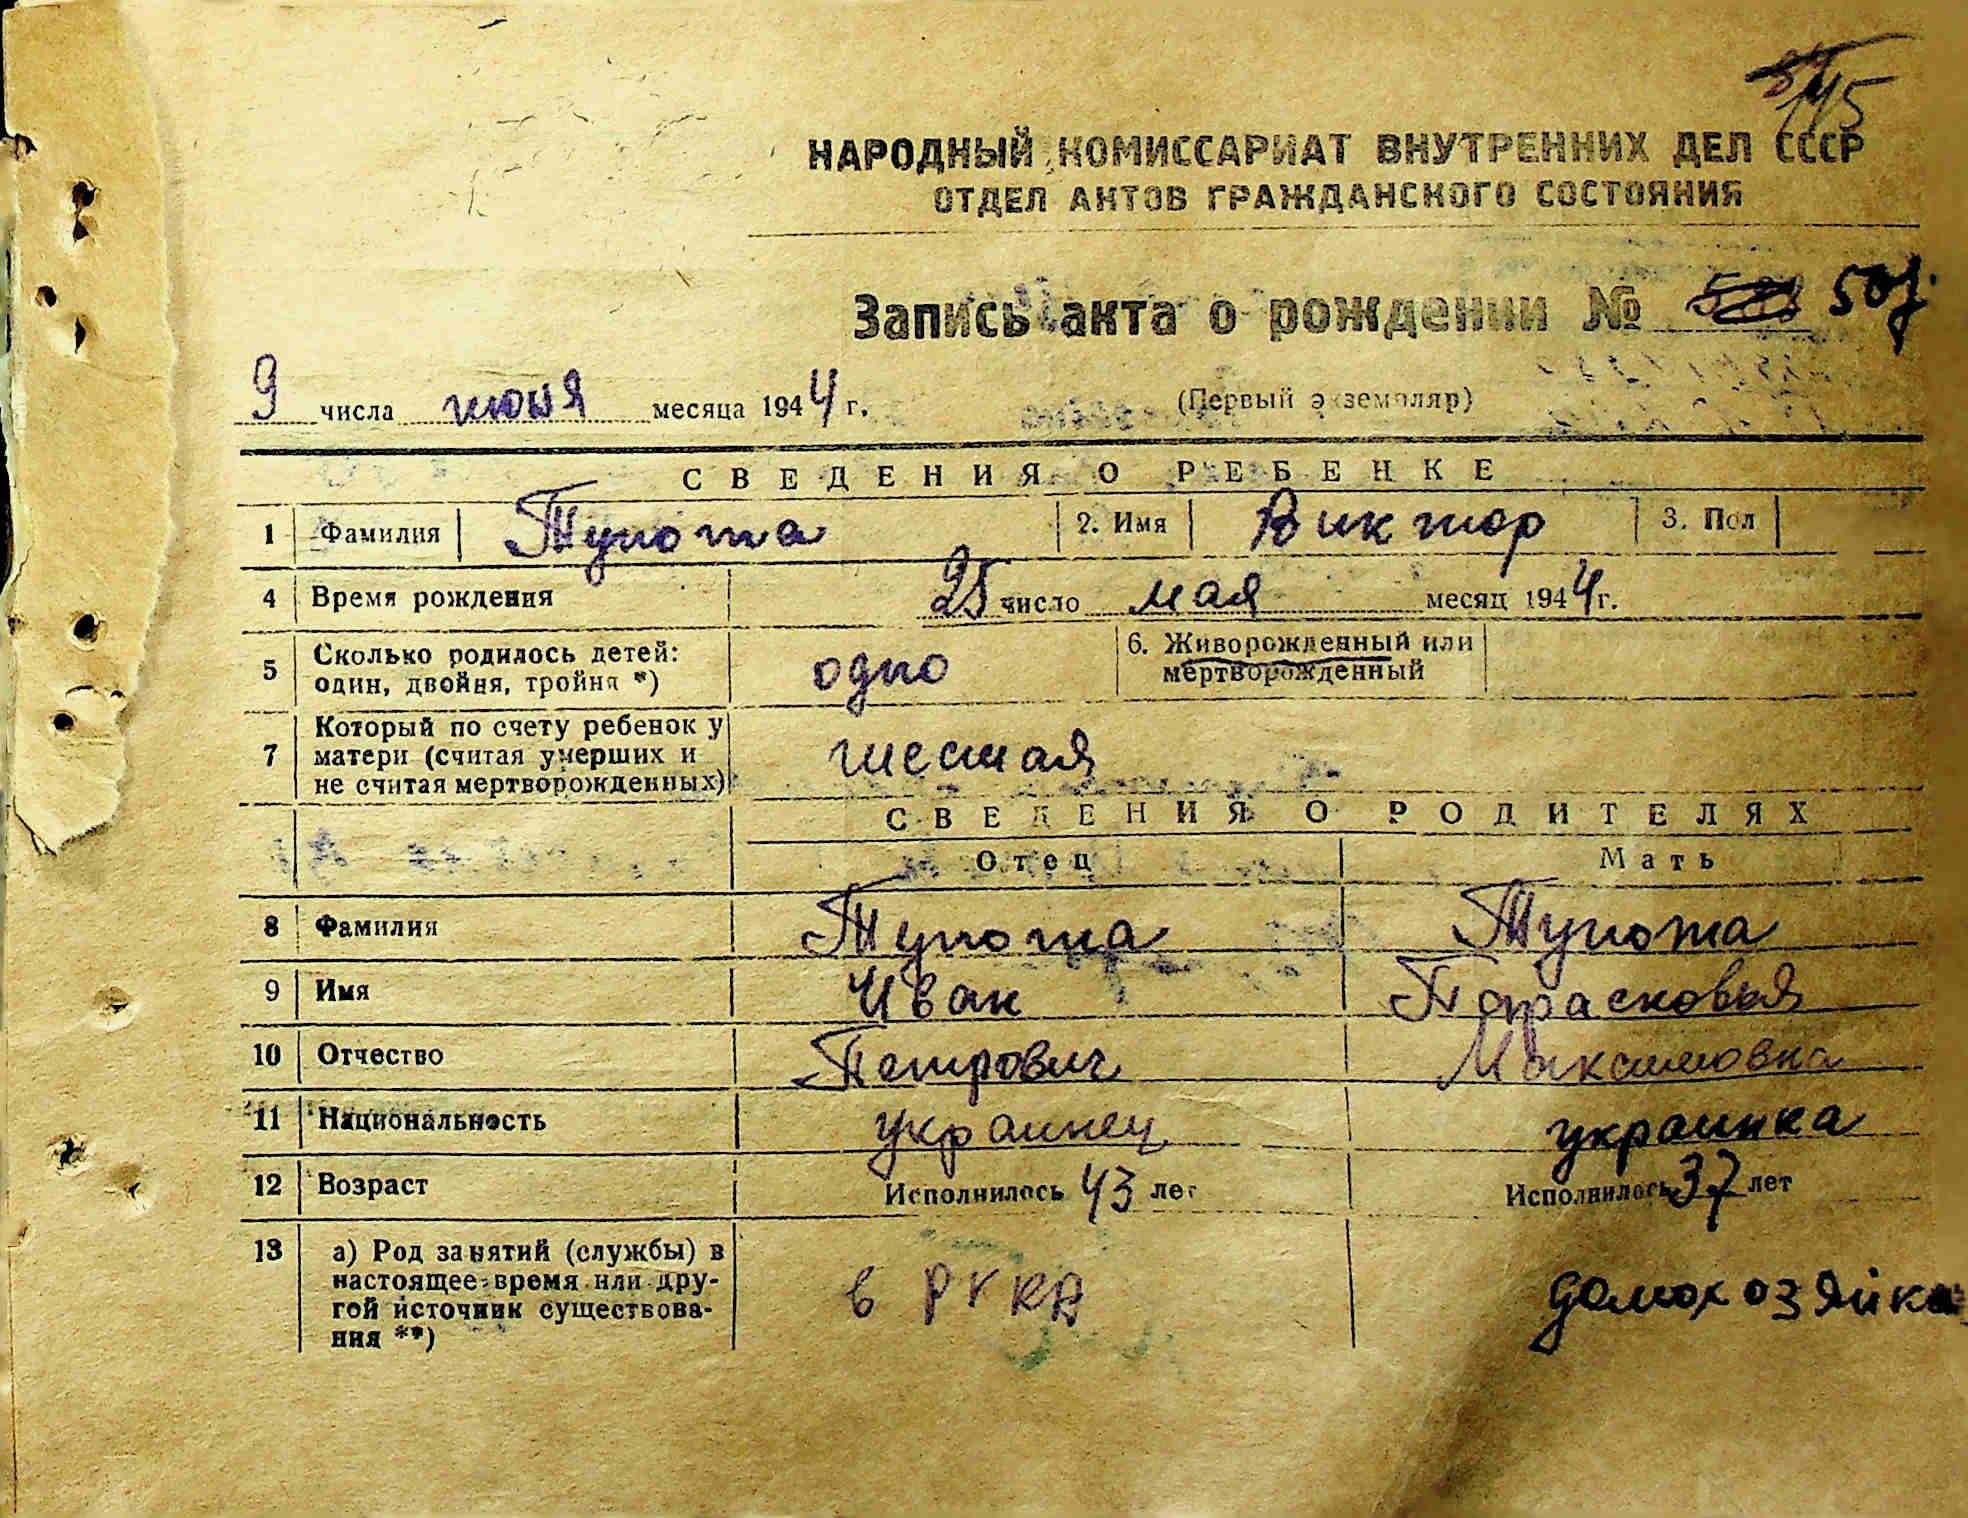 145
НАРОДНЫЙ КОМИССАРИАТ ВНУТРЕННИХ ДЕЛ СССР
ОТДЕЛ АКТОВ ГРАЖДАНСКОГО СОСТОЯНИЯ
Запись акта о рождении №
9 числа июня месяца 1944 г.
(Первый экземпляр)
СВЕДЕНИЯ О РЕБЕНКЕ
1 Фамилия Тупота 2. Имя Виктор 3. Пол
4 Время рождения 25 число мая месяц 1944 г.
5 Сколько родилось детей: один, двойня, тройня *) одно 6. Живорожденный или мертворожденный
7 Который по счету ребенок у матери (считая умерших и не считая мертворожденных) шестая
СВЕДЕНИЯ О РОДИТЕЛЯХ
Отец Мать
8 Фамилия Тупота Тупота
9 Имя Иван Парасковья
10 Отчество Петрович Максимовна
11 Национальность украинец украинка
12 Возраст Исполнилось 43 лет Исполнилось 37 лет
13 а) Род занятий (службы) в
настоящее время или дру-
гой источник существова-
ния **)
в РККА домохозяйка